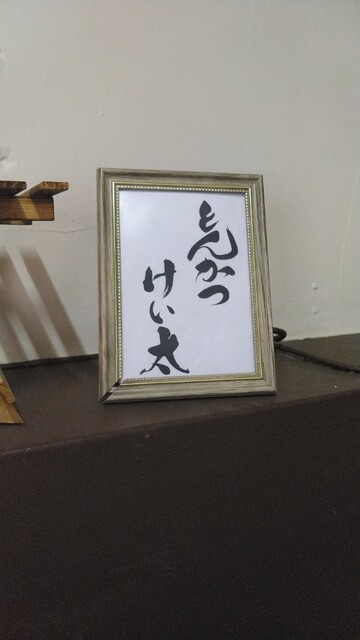 とんかつ
けい太